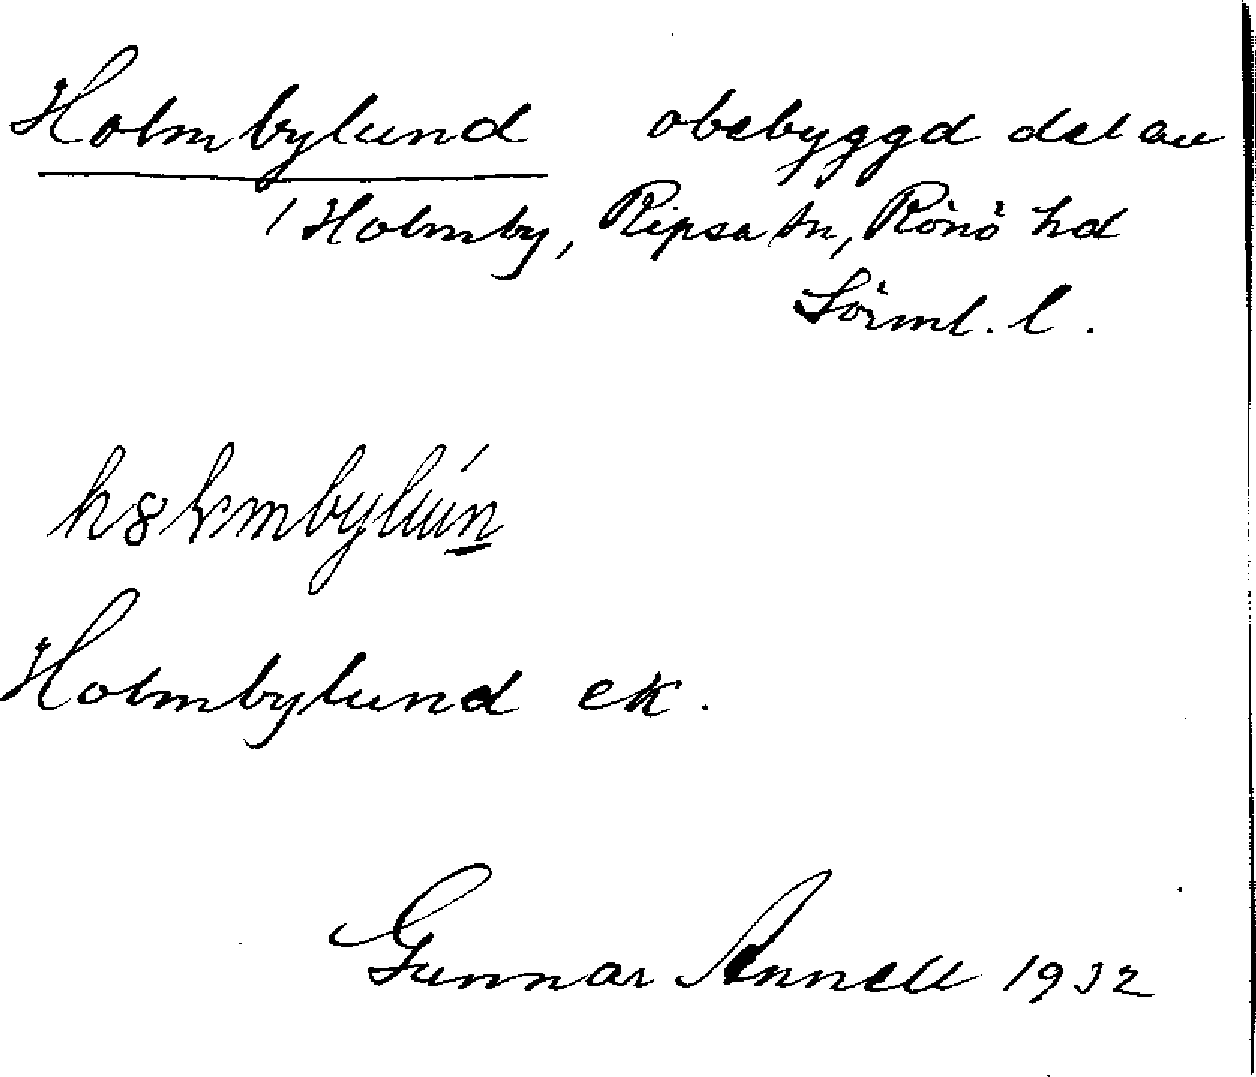 Holmbylund obebyggd del av
/ Holmby, Ripsa sn, Rönö hd
Sörml. l.
Holmbylund ek.
Gunnar Annell 1932